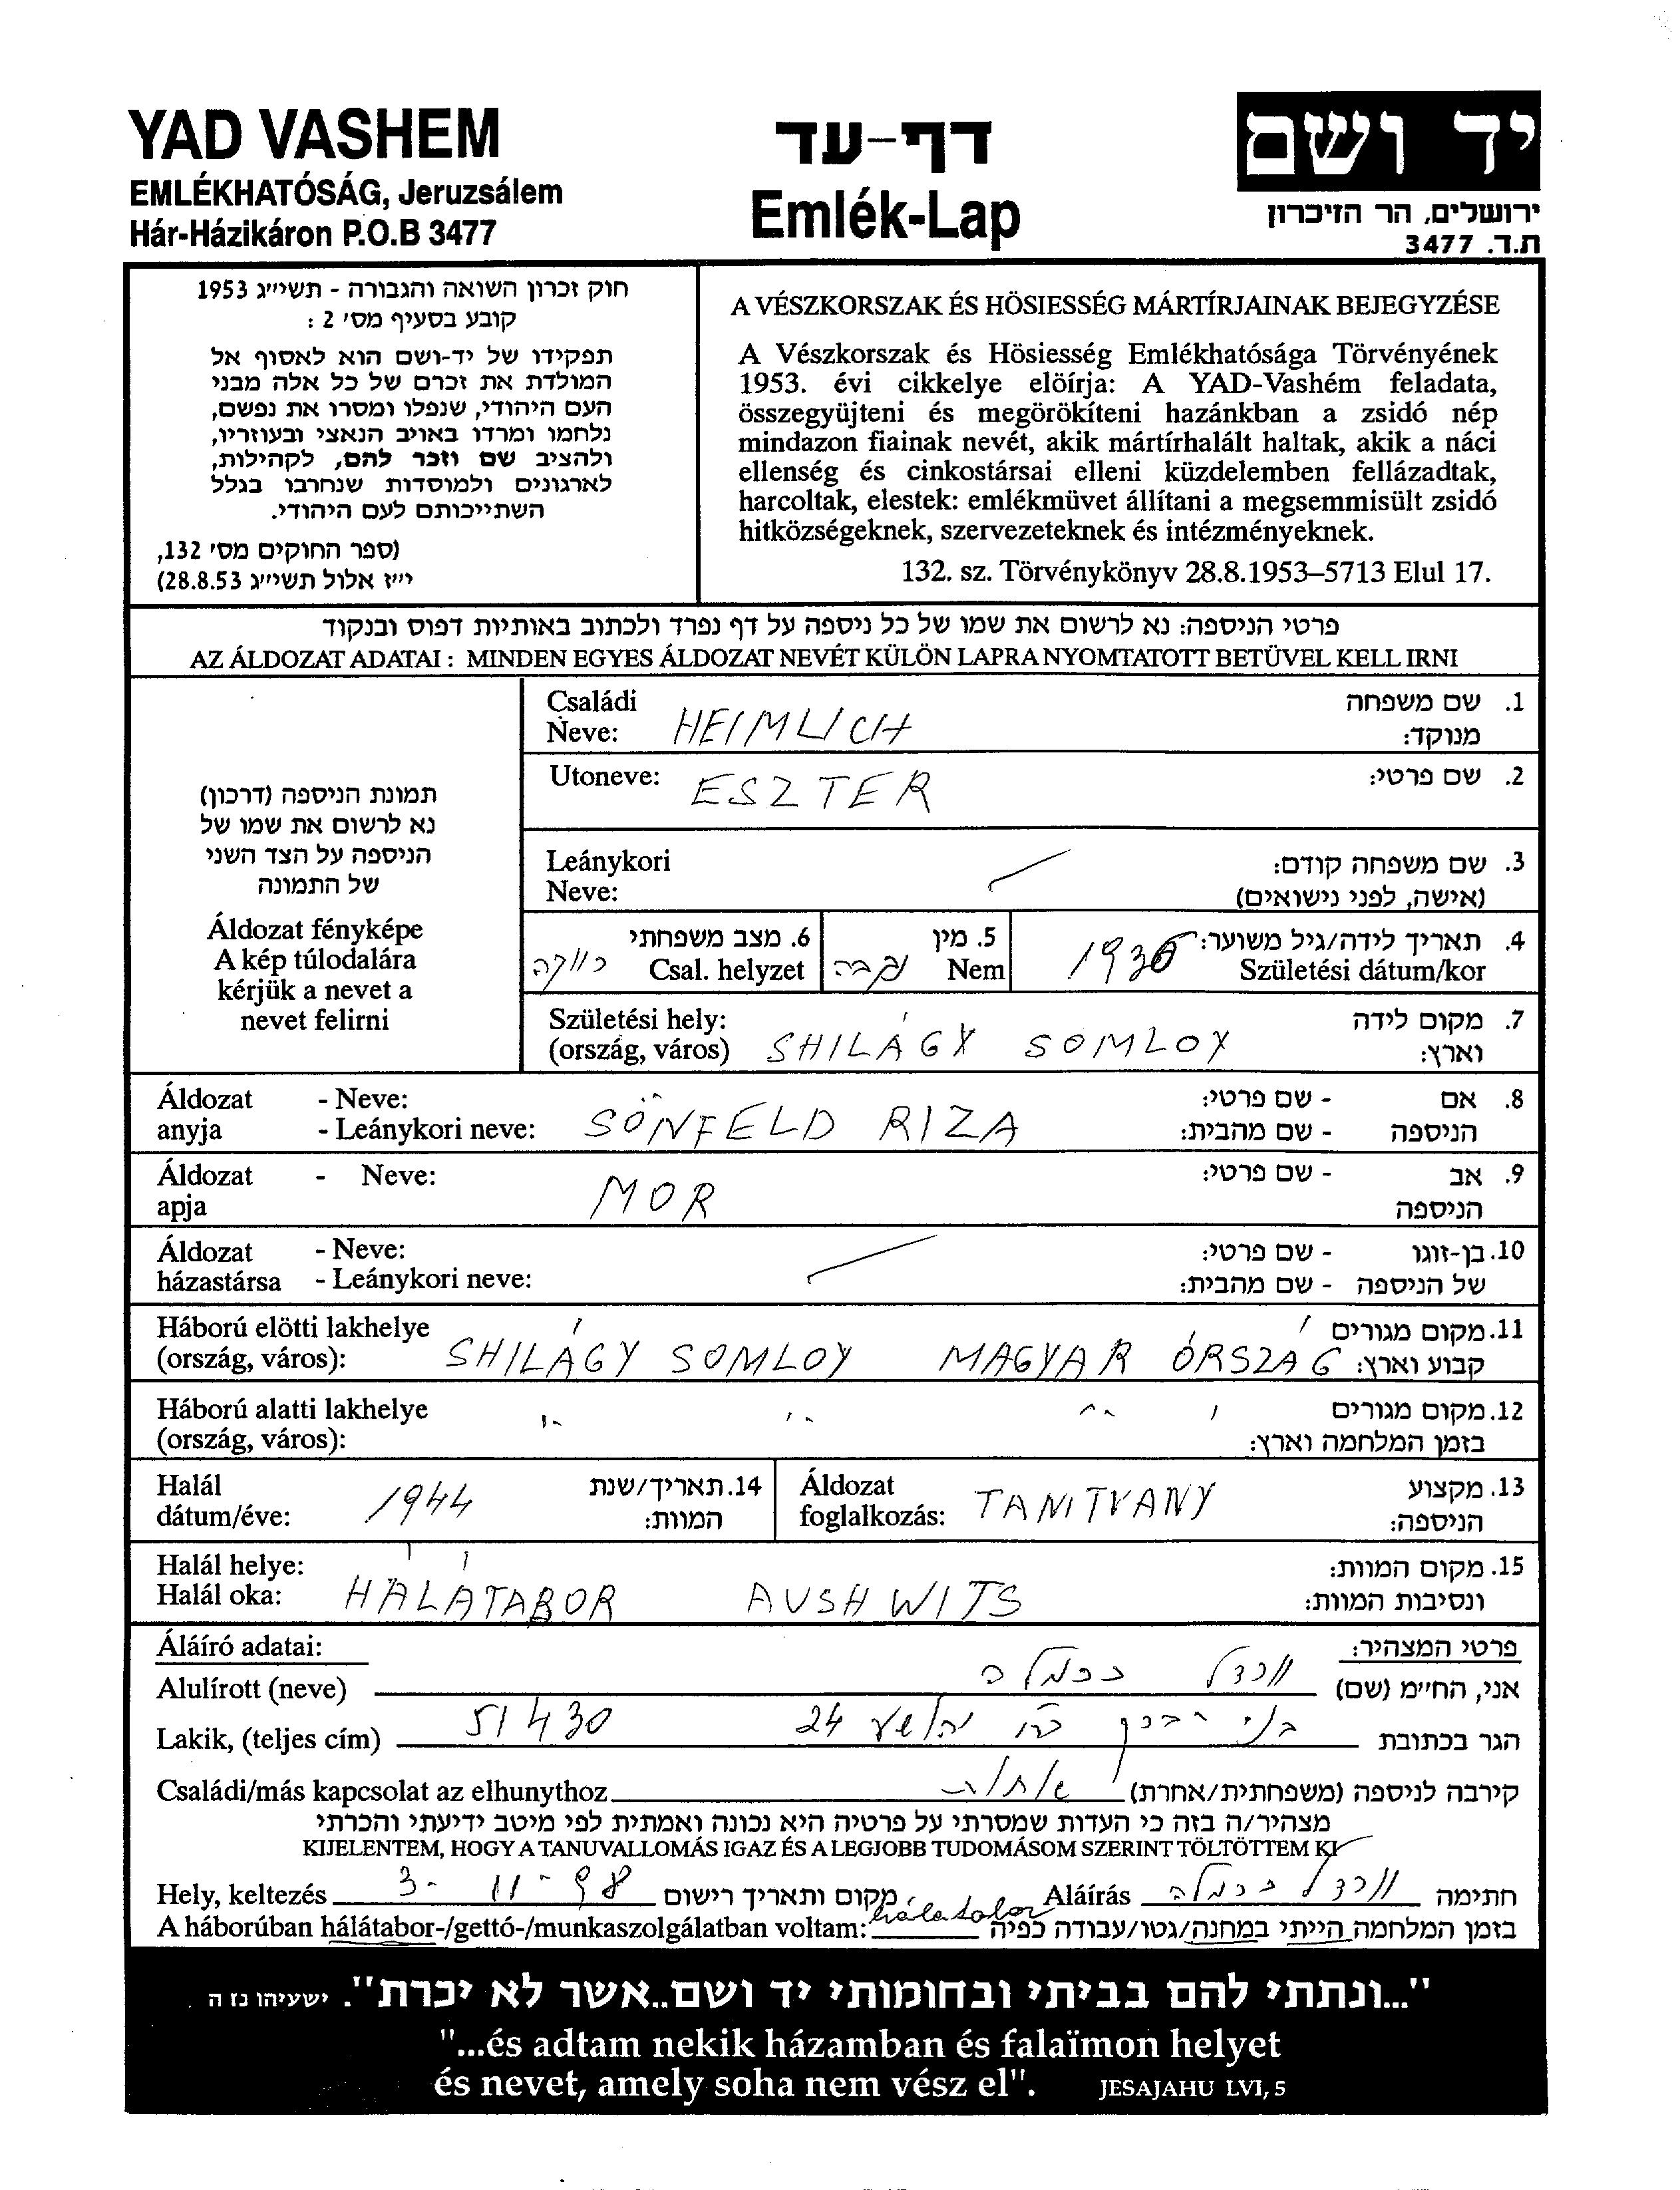 YAD VASHEM
EMLÉKHATÓSÁG, Jeruzsálem
Hár-Házikáron P.O.B 3477
דף-עד
Emlék-Lap
יד ושם
ירושלים, הר הזיכרון
ת.ד. 3477
חוק זכרון השואה והגבורה - תשי״ג 1953
קובע בסעיף מס׳ 2 :
תפקידו של יד-ושם הוא לאסוף אל
המולדת את זכרם של כל אלה מבני
העם היהודי, שנפלו ומסרו את נפשם,
נלחמו ומרדו באויב הנאצי ובעוזריו,
ולהציב שם וזכר להם, לקהילות,
לארגונים ולמוסדות שנחרבו בגלל
השתייכותם לעם היהודי.
(ספר החוקים מס׳ 132,
י״ז אלול תשי״ג 28.8.53)
A VÉSZKORSZAK ÉS HÖSIESSÉG MÁRTÍRJAINAK BEJEGYZÉSE
A Vészkorszak és Hösiesség Emlékhatósága Törvényének
1953. évi cikkelye elöírja: A YAD-Vashém feladata,
összegyüjteni és megörökíteni hazánkban a zsidó nép
mindazon fiainak nevét, akik mártírhalált haltak, akik a náci
ellenség és cinkostársai elleni küzdelemben fellázadtak,
harcoltak, elestek: emlékmüvet állítani a megsemmisült zsidó
hitközségeknek, szervezeteknek és intézményeknek.
132. sz. Törvénykönyv 28.8.1953–5713 Elul 17.
פרטי הניספה: נא לרשום את שמו של כל ניספה על דף נפרד ולכתוב באותיות דפוס ובנקוד
AZ ÁLDOZAT ADATAI : MINDEN EGYES ÁLDOZAT NEVÉT KÜLÖN LAPRA NYOMTATOTT BETÜVEL KELL IRNI
תמונת הניספה (דרכון)
נא לרשום את שמו של
הניספה על הצד השני
של התמונה
Áldozat fényképe
A kép túlodalára
kérjük a nevet a
nevet felirni
Családi Neve: HEIMLICH 1. שם משפחה מנוקד:
Utoneve: ESZTER 2. שם פרטי:
Leánykori Neve: 3. שם משפחה קודם: (אישה, לפני נישואים)
6. מצב משפחתי Csal. helyzet רווקה 5. מין Nem נקבה 4. תאריך לידה/גיל משוער: Születési dátum/kor 1936
Születési hely: (ország, város) SHILÁGY SOMLOY 7. מקום לידה וארץ:
Áldozat anyja - Neve: - Leánykori neve: SÖNFELD RIZA - שם פרטי: - שם מהבית: 8. אם הניספה
Áldozat apja - Neve: MOR - שם פרטי: 9. אב הניספה
Áldozat házastársa - Neve: - Leánykori neve: - שם פרטי: - שם מהבית: 10. בן-זוגו של הניספה
Háború elötti lakhelye (ország, város): SHILÁGY SOMLOY MAGYAR ÓRSZÁG 11. מקום מגורים קבוע וארץ:
Háború alatti lakhelye (ország, város): 12. מקום מגורים בזמן המלחמה וארץ:
Halál dátum/éve: 1944 14. תאריך/שנת המוות: Áldozat foglalkozás: TANITVANY 13. מקצוע הניספה:
Halál helye: Halál oka: HÁLÁTABOR AUSHWITS 15. מקום המוות: ונסיבות המוות:
Áláíró adatai: פרטי המצהיר:
Alulírott (neve) אני, הח״מ (שם)
Lakik, (teljes cím) 51430 24 בני ברק הגר בכתובת
Családi/más kapcsolat az elhunythoz קירבה לניספה (משפחתית/אחרת)
מצהיר/ה בזה כי העדות שמסרתי על פרטיה היא נכונה ואמתית לפי מיטב ידיעתי והכרתי
KIJELENTEM, HOGY A TANUVALLOMÁS IGAZ ÉS A LEGJOBB TUDOMÁSOM SZERINT TÖLTÖTTEM KI
Hely, keltezés 3-11-98 מקום ותאריך רישום Aláírás חתימה
A háborúban hálátabor-/gettó-/munkaszolgálatban voltam: hálatabor בזמן המלחמה הייתי במחנה/גטו/עבודה כפיה
"...ונתתי להם בביתי ובחומותי יד ושם..אשר לא יכרת". ישעיהו נז ה
"...és adtam nekik házamban és falaïmon helyet
és nevet, amely soha nem vész el". JESAJAHU LVI, 5